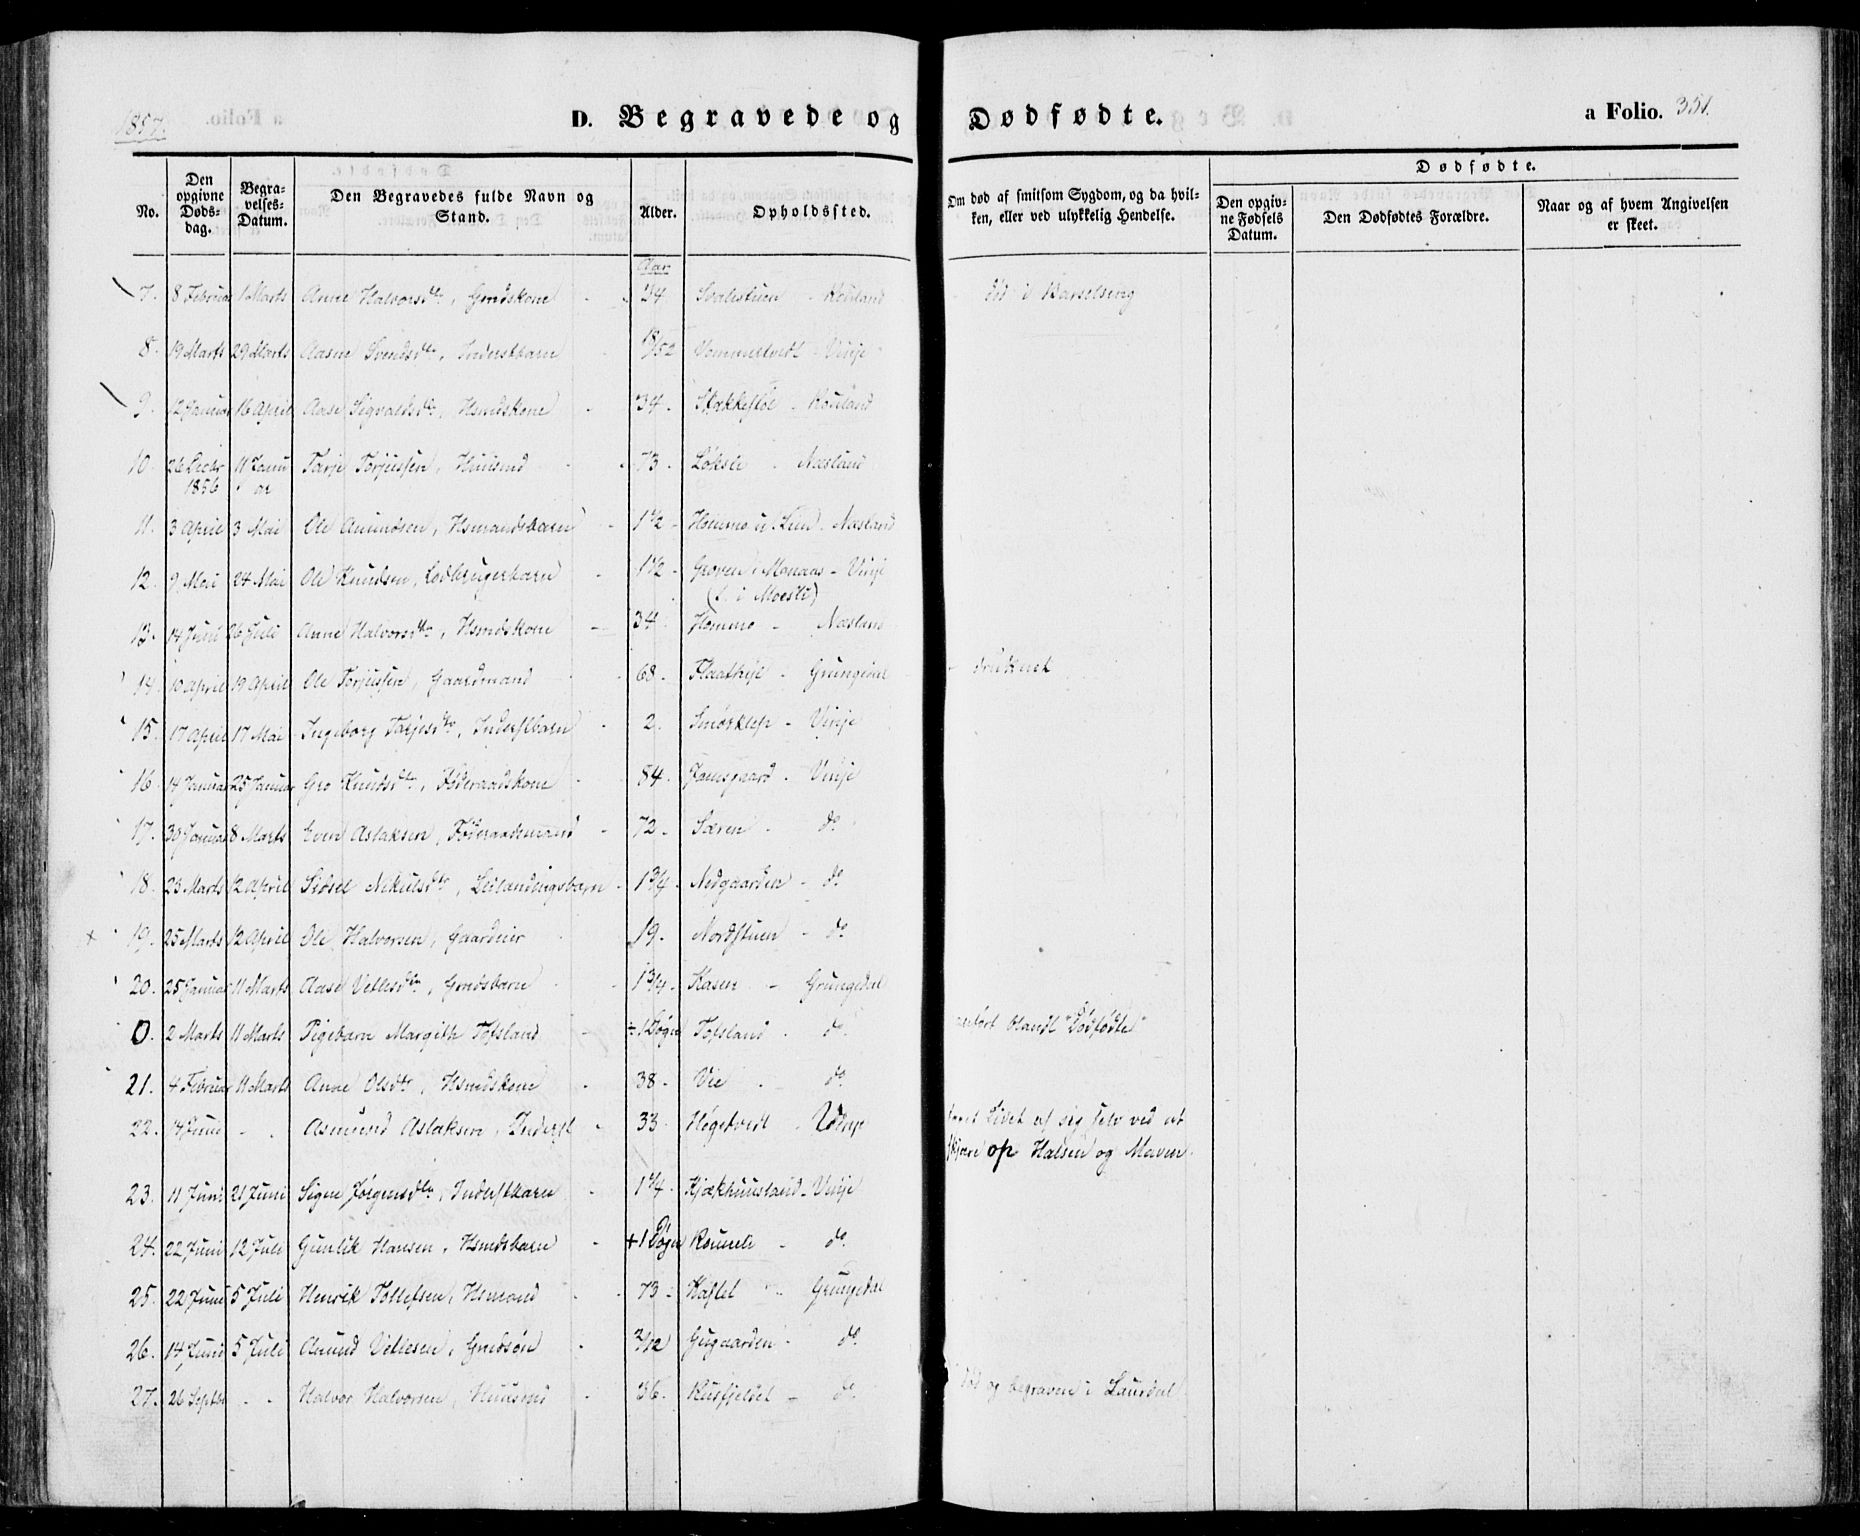 1857.
D. Begravede og Dødfødte.
a Folio. 351.
No.
Den opgivne Døds-dag.
Begra-velses-Datum.
Den Begravedes fulde Navn og Stand.
Alder.
Opholdssted.
Om død af smitsom Sygdom, og da hvil-ken, eller ved ulykkelig Hendelse.
Dødfødte.
Den opgiv-ne Fødsels Datum.
Den Dødfødtes Forældre.
Naar og af hvem Angivelsen er skeet.
Aar
7. 8 Februar 1 Marts Anne Halvorsdtr, Gmdskone 24 Svalestuen - Rouland død i Barselseng
8. 19 Marts 29 Marts Aasne Svendsdtr, Inderstbarn 18/52 Vommeltvedt - Vinje
9. 12 Januar 16 April Aase Sigvaldsdtr, Hsmdskone 34. Stækkestøl - Rouland
10. 26 Decbr 1856 11 Januar Tarje Torjussen, Huusmd 73. Løksli - Næsland
11. 3 April 3 Mai Ole Amundsen, Hsmandsbarn 1 1/2 Hommo u. Lien. Næsland
12. 9 Mai 24 Mai Ole Knudsen, Lodbrugerbarn 1 1/2 Groven i Manaas - Vinje
(f. i Moesli)
13. 14 Juni 26 Juli Anne Halvorsdtr, Hsmdskone 34. Hommo - Næsland
14. 10 April 19 April Ole Torjussen, Gaardmand 68. Flaathyl - Grungedal - druknet
15. 17 April 17 Mai Ingeborg Tarjesdtr, Inderstbarn 2. Smørklep - Vinje
16. 14 Januar 25 Januar Gro Knudsdtr, Føderaadskone 84. Jamsgaard - Vinje
17. 30 Januar 8 Marts Even Aslaksen, Føderaadsmand 72. Særen - do
18. 23 Marts 12 April Sidsel Nikulsdtr, Leilændingsbarn 1 3/4. Nedgaarden - do
19. 25 Marts 12 April Ole Halvorsen, Gaardeier 19. Nordstuen - do
20. 25 Januar 11 Marts Aase Vetlesdtr, Gmdsbarn 1 3/4. Kasen - Grungedal
0. 2 Marts 11 Marts Pigebarn Margith Tofsland ÷ 1 Døgn Tofsland - do anført blandt "Dødfødte"
21. 4 Februar 11 Marts Anne Olsdtr, Hsmdskone 38 - Vee - do
22. 14 Juni - - Asmund Aslaksen, Inderst 33. Høgetvedt - taget Livet af sig selv ved at
skjære op Halsen og Maven.
23. 11 Juni 21 Juni Signe Jørgensdtr, Inderstbarn 1 1/4. Kjækhuusland - Vinje
24. 22 Juni 12 Juli Gunlik Hansen, Hsmdsbarn + 1 Døgn Rouneli - do
25. 22 Juni 5 Juli Henrik Tollefsen, Hsmand 73 - Kastet - Grungedal
26. 14 Juni 5 Juli Amund Vetlesen, Gmdsøn 2/12 Gugaarden - do
27. 26 Septbr - - Halvor Halvorsen, Huusmd 36. Rusfjeldet - do død og begraven i Laurdal